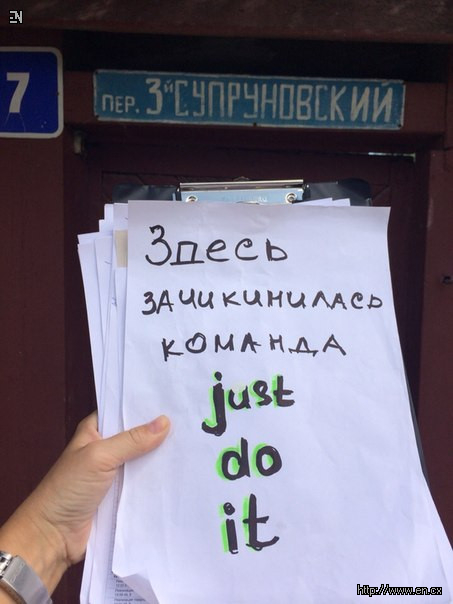 EN
7
ПЕР. 3Й СУПРУНОВСКИЙ
Здесь
ЗАЧИКИНИЛАСЬ
КОМАНДА
just
do
it
http://www.en.cx